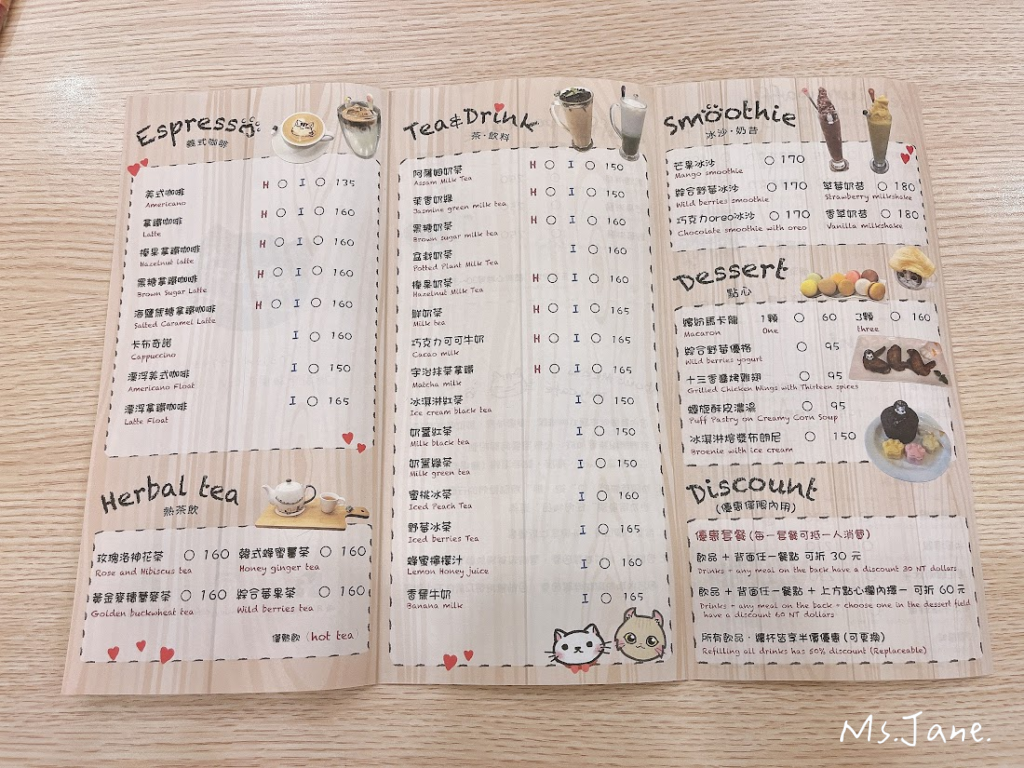 Espresso
義式咖啡
美式咖啡 H ○ I ○ 135
Americano
拿鐵咖啡 H ○ I ○ 160
Latte
榛果拿鐵咖啡 H ○ I ○ 160
Hazelnut latte
黑糖拿鐵咖啡 H ○ I ○ 160
Brown Sugar Latte
海鹽焦糖拿鐵咖啡 H ○ I ○ 160
Salted Caramel Latte
卡布奇諾 I ○ 160
Cappuccino
漂浮美式咖啡 I ○ 150
Americano Float
漂浮拿鐵咖啡 I ○ 165
Latte Float
Herbal tea
熱茶飲
玫瑰洛神花茶 ○ 160 韓式蜂蜜薑茶 ○ 160
Rose and Hibiscus tea Honey ginger tea
黃金麥穗蕎麥茶 ○ 160 綜合莓果茶 ○ 160
Golden buckwheat tea Wild berries tea
僅熱飲 (hot tea
Tea&Drink
茶·飲料
阿薩姆奶茶 H ○ I ○ 150
Assam Milk Tea
茉香奶綠 H ○ I ○ 150
Jasmine green milk tea
黑糖奶茶 H ○ I ○ 160
Brown sugar milk tea
盆栽奶茶 I ○ 160
Potted Plant Milk Tea
榛果奶茶 H ○ I ○ 160
Hazelnut Milk Tea
鮮奶茶 H ○ I ○ 165
Milk tea
巧克力可可牛奶 H ○ I ○ 165
Cacao milk
宇治抹茶拿鐵 H ○ I ○ 165
Matcha milk
冰淇淋紅茶 I ○ 150
Ice cream black tea
奶蓋紅茶 I ○ 150
Milk black tea
奶蓋綠茶 I ○ 150
Milk green tea
蜜桃冰茶 I ○ 160
Iced Peach Tea
野莓冰茶 I ○ 165
Iced berries Tea
蜂蜜檸檬汁 I ○ 160
Lemon Honey juice
香蕉牛奶 I ○ 165
Banana milk
Smoothie
冰沙·奶昔
芒果冰沙 ○ 170
Mango smoothie
綜合野莓冰沙 ○ 170 草莓奶昔 ○ 180
Wild berries smoothie Strawberry milkshake
巧克力oreo冰沙 ○ 170 香草奶昔 ○ 180
Chocolate smoothie with oreo Vanilla milkshake
Dessert
點心
繽紛馬卡龍 1顆 ○ 60 3顆 ○ 160
Macaron One three
綜合野莓優格 ○ 95
Wild berries yogurt
十三香醬烤雞翅 ○ 95
Grilled Chicken Wings with Thirteen spices
螺旋酥皮濃湯 ○ 95
Puff Pastry on Creamy Corn Soup
冰淇淋熔漿布朗尼 ○ 150
Brownie with ice cream
Discount
(優惠僅限內用)
優惠套餐(每一套餐可抵一人消費)
飲品 + 背面任一餐點 可折 30 元
Drinks + any meal on the back have a discount 30 NT dollars
飲品 + 背面任一餐點 + 上方點心欄內擇一 可折 60元
Drinks + any meal on the back + choose one in the dessert field
have a discount 60 NT dollars
所有飲品·續杯皆享半價優惠(可更換)
Refilling all drinks has 50% discount (Replaceable)
Ms.Jane.